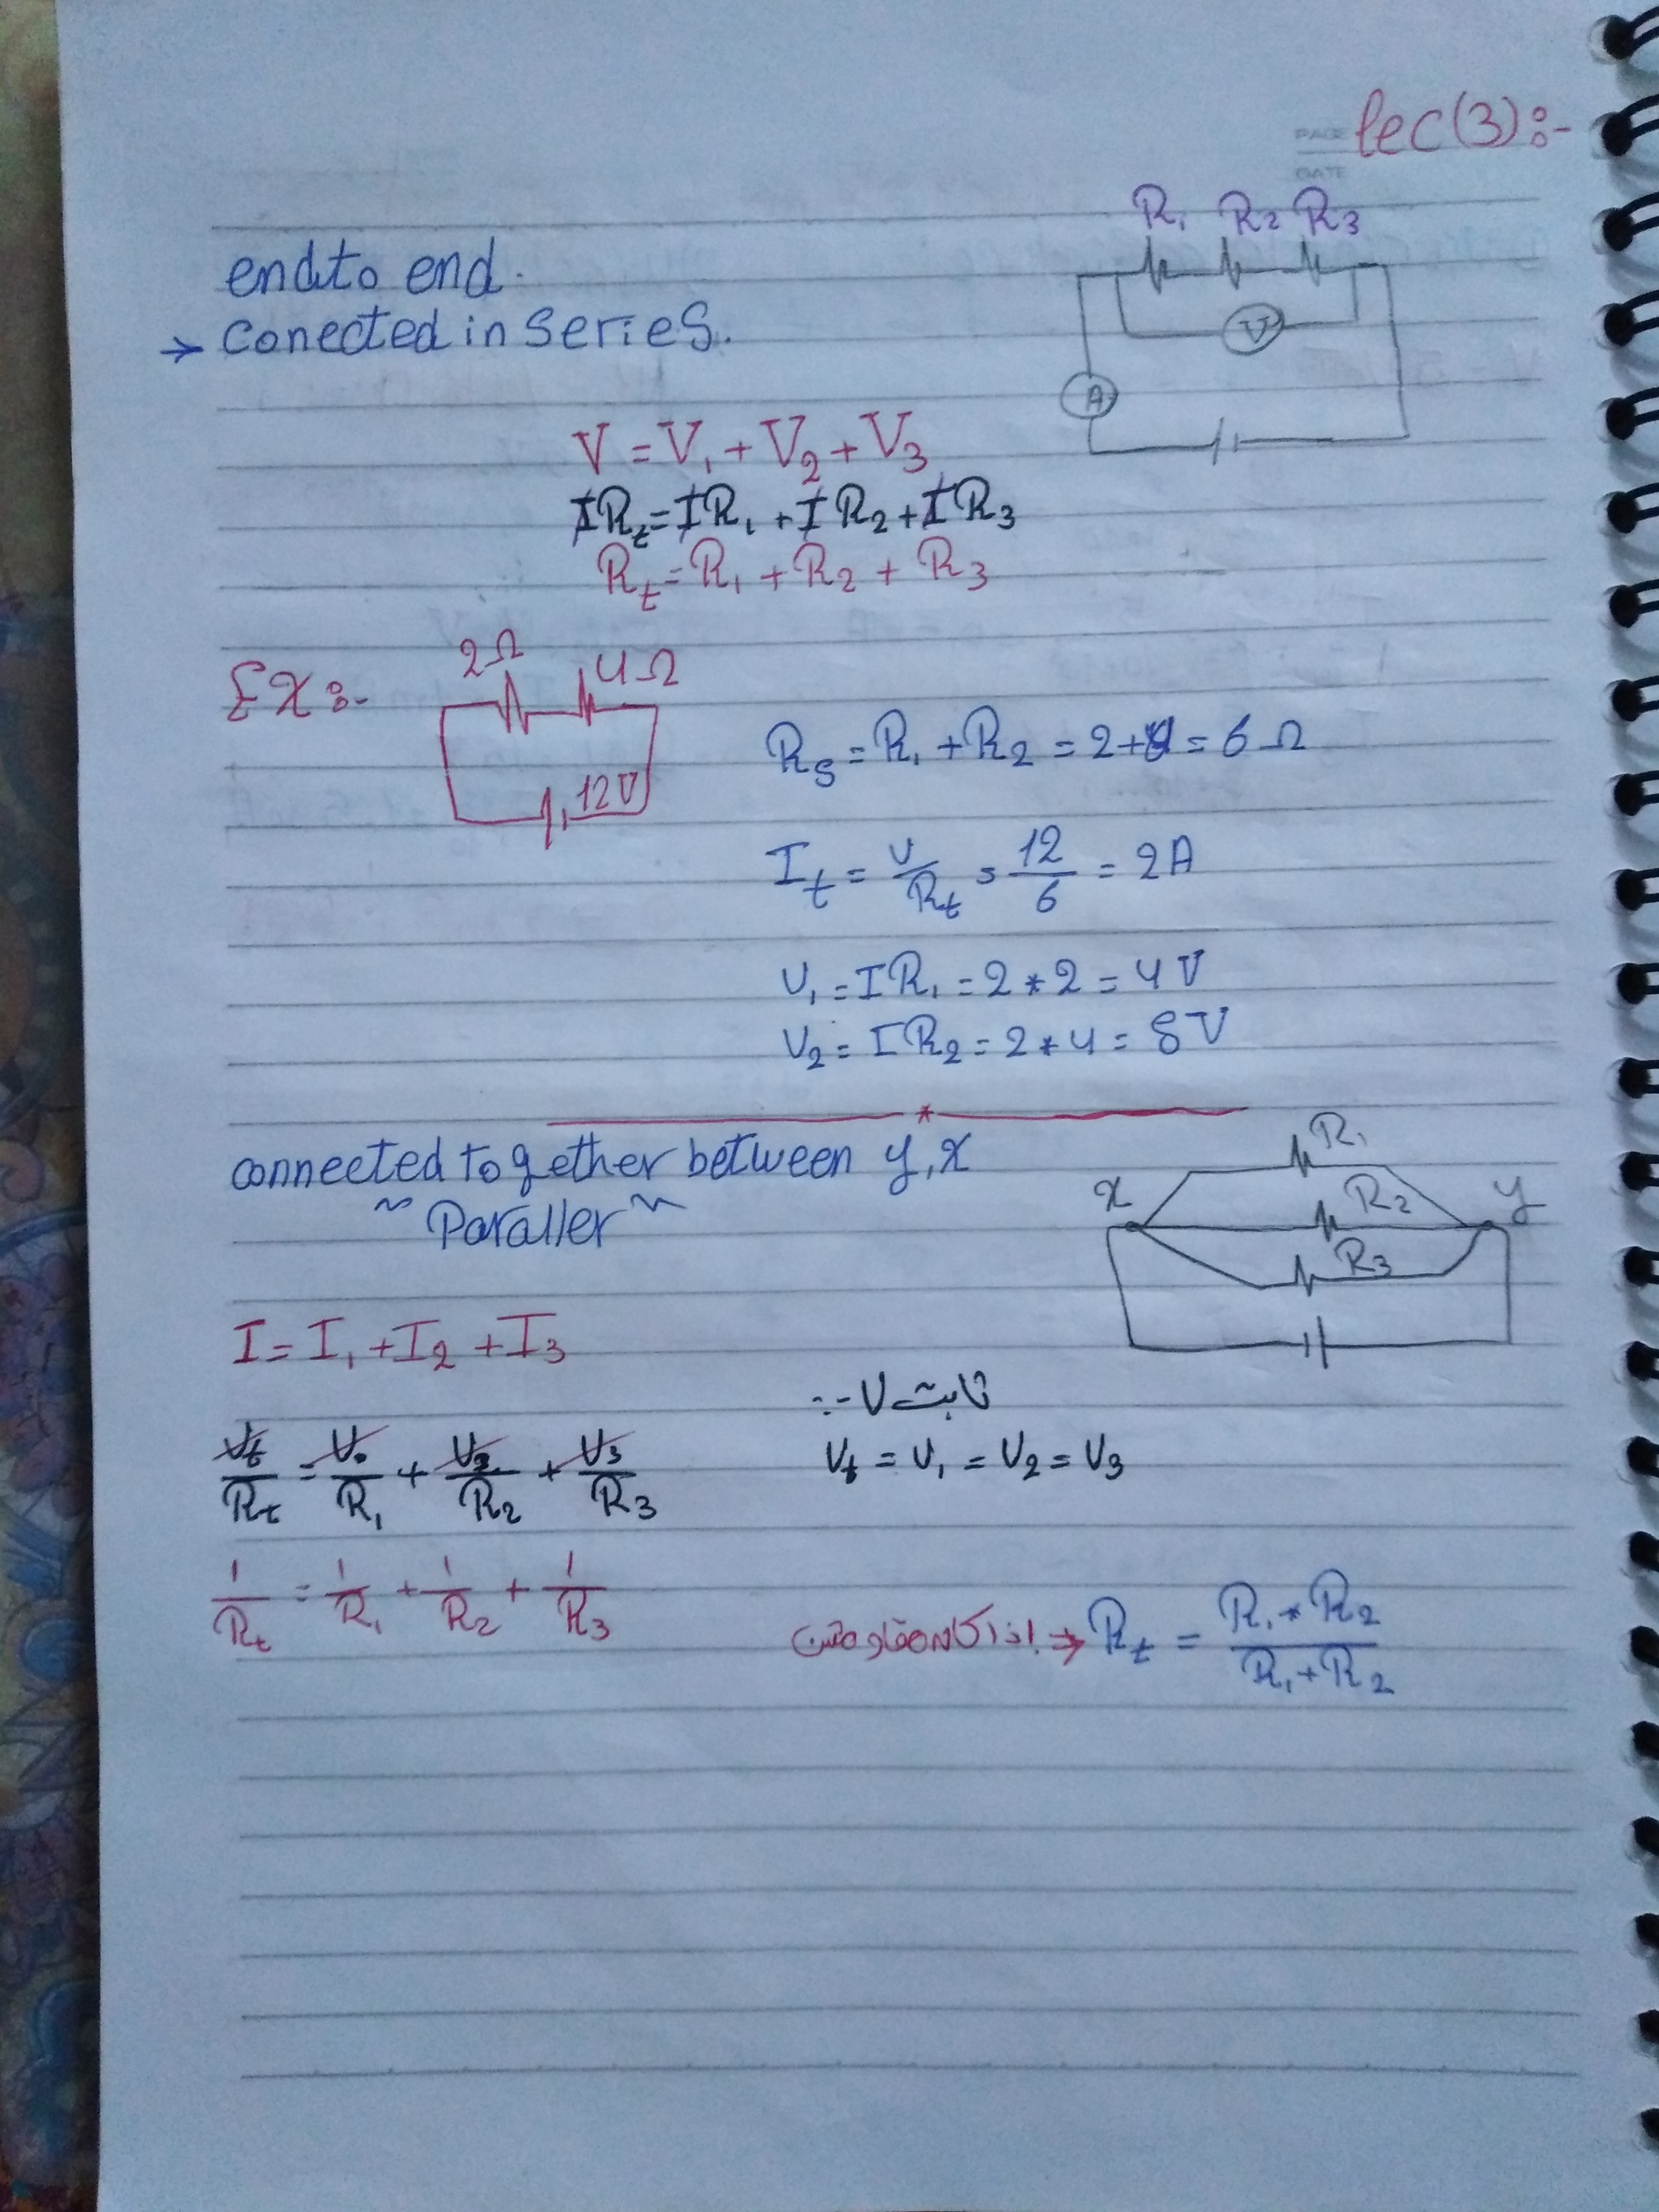 PAGE
DATE
lec(3):-
R₁ R₂ R₃
end to end.
→ conected in series.
V
A
V = V₁ + V₂ + V₃
IRt = IR₁ + IR₂ + IR₃
Rt = R₁ + R₂ + R₃
EX:-
2Ω 4Ω
12V
Rs = R₁ + R₂ = 2+4 = 6 Ω
It = V/Rt = 12/6 = 2A
V₁ = IR₁ = 2 * 2 = 4 V
V₂ = IR₂ = 2 * 4 = 8 V
connected together between y, x
~ Paraller ~
R₁
x R₂ y
R₃
I = I₁ + I₂ + I₃
ثابت V :-
Vt/Rt = V₁/R₁ + V₂/R₂ + V₃/R₃
Vt = V₁ = V₂ = V₃
1/Rt = 1/R₁ + 1/R₂ + 1/R₃
اذا كان مقاومتين ⇒ Rt = R₁ * R₂ / R₁ + R₂